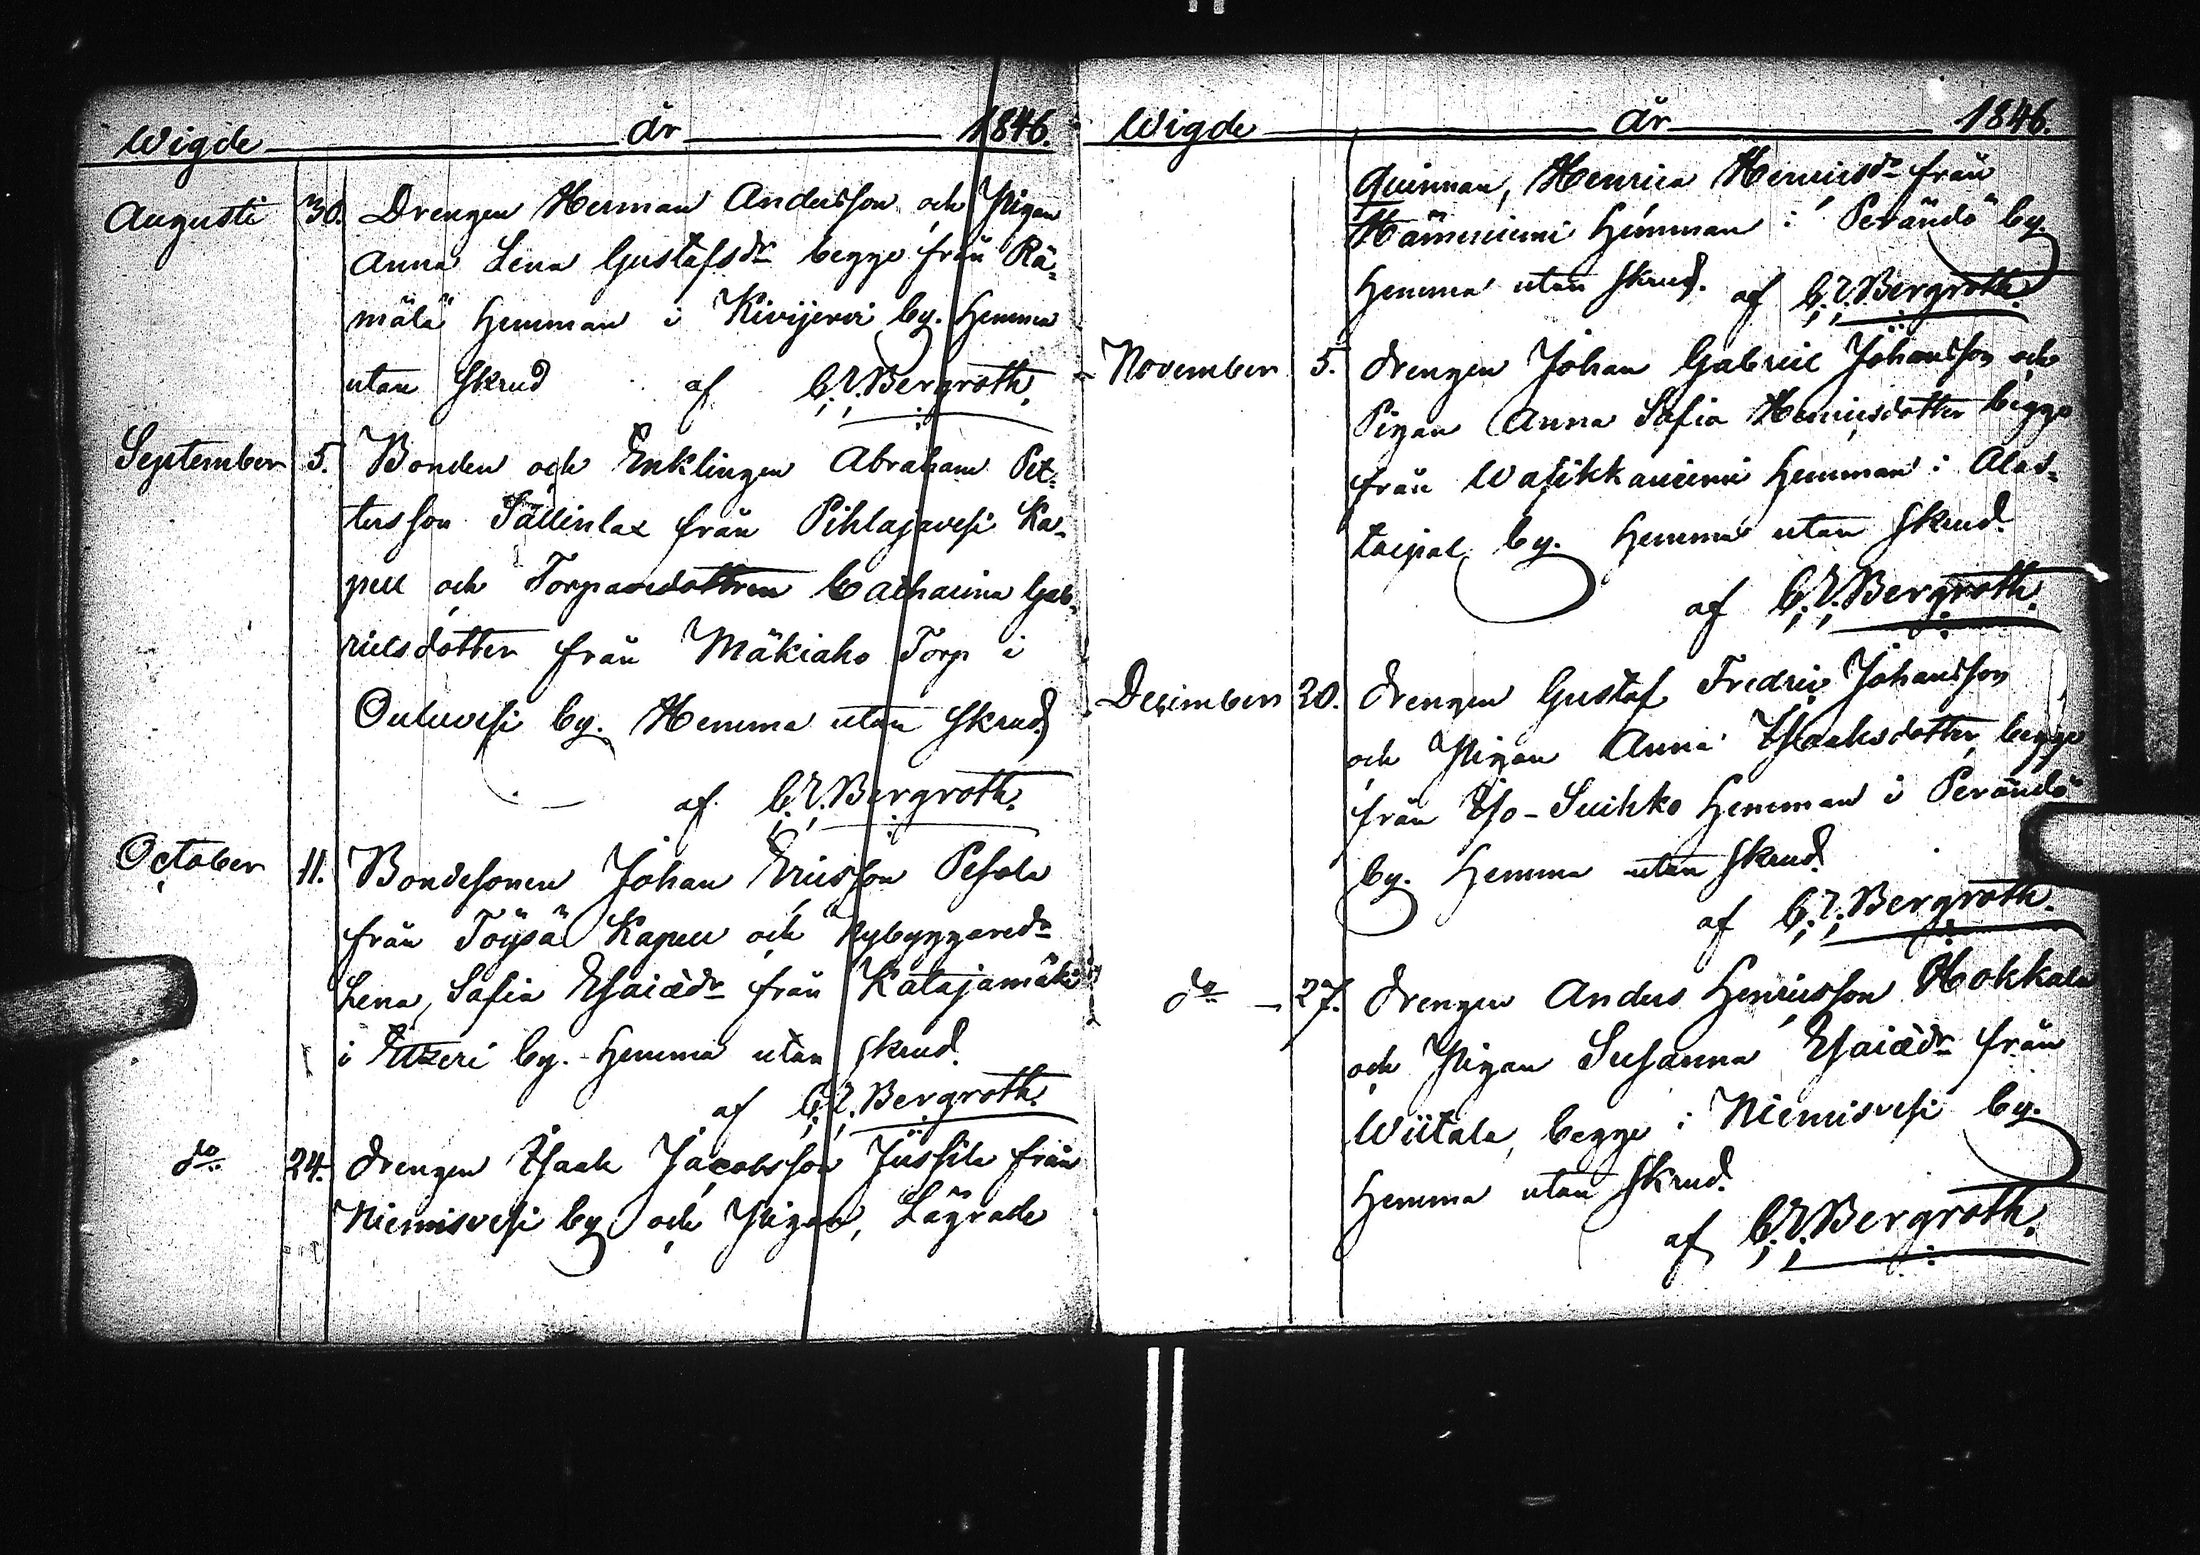 Wigde år 1846.
Augusti 30. Drengen Herman Andersson och Pigan
Anna Lena Gustafsdr begge från Rä-
mälä Hemman i Kivijervi by. Hemma
utan skrud af C. E. Bergroth.
September 5. Bonden och Enklingen Abraham Pet-
tersson Sällinlax från Pihlajavesi Ka-
pell och Torparedottren Catharina Gab-
rielsdotter från Mäkiaho Torp i
Ouluvesi by. Hemma utan skrud
af C. E. Bergroth.
October 11. Bondesonen Johan Ericsson Pesola
från Töysä Kapell och Nybyggaredr
Lena, Safia Esaiædr från Katajamäki
i Etzeri by. Hemma utan skrud.
af C. E. Bergroth.
do 24. Drengen Isaak Jacobsson Jussila från
Niemisvesi by och Pigan, Lägrade
Wigde år 1846.
Quinnan, Henrica Henricsdr från
Hämeniemi Hemman i Perändö by.
Hemma utan skrud. af C. E. Bergroth.
November 5. Drengen Johan Gabriel Johansson och
Pigan Anna Safia Henricsdotter begge
från Watikkaniemi Hemman i Alas-
taipal by. Hemma utan skrud.
af C. E. Bergroth.
December 20. Drengen Gustaf Fredric Johansson
och Pigan Anna Isaaksdotter, begge
från Iso-Suihko Hemman i Perändö
by. Hemma utan skrud.
af C. E. Bergroth.
do 27. Drengen Anders Henricsson Hokkala
och Pigan Susanna Esaiædr från
Wiitala, begge i Niemisvesi by.
Hemma utan skrud.
af C. E. Bergroth.